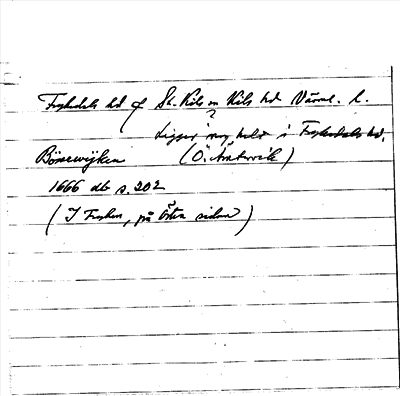 Fryksdals hd af St. Kils sn Kils hd Värml. l.
?
Ligger nog helt i Fryksdals hd.
Bönewijken (Ö. Ämtervik)
1666 db s. 202
(I Fryken, på östra sidan)